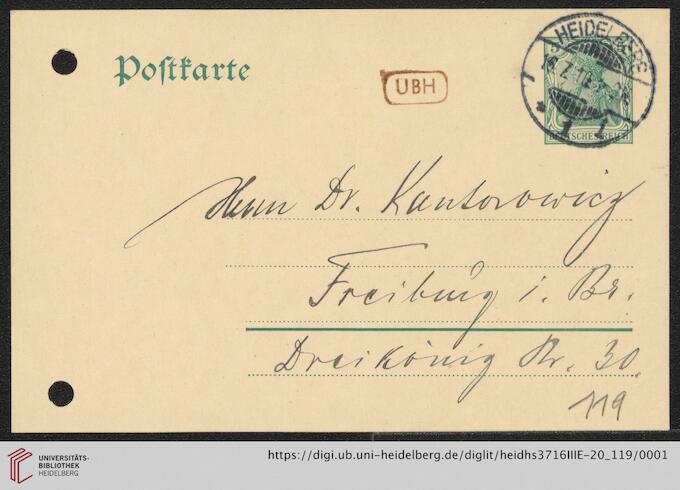 Postkarte
UBH
HEIDELBERG
1
DEUTSCHES REICH
Herrn Dr. Kantorowicz
Freiburg i. Br.
Dreikönig Str. 30.
119
UNIVERSITÄTS-
BIBLIOTHEK
HEIDELBERG
https://digi.ub.uni-heidelberg.de/diglit/heidhs3716IIIE-20_119/0001